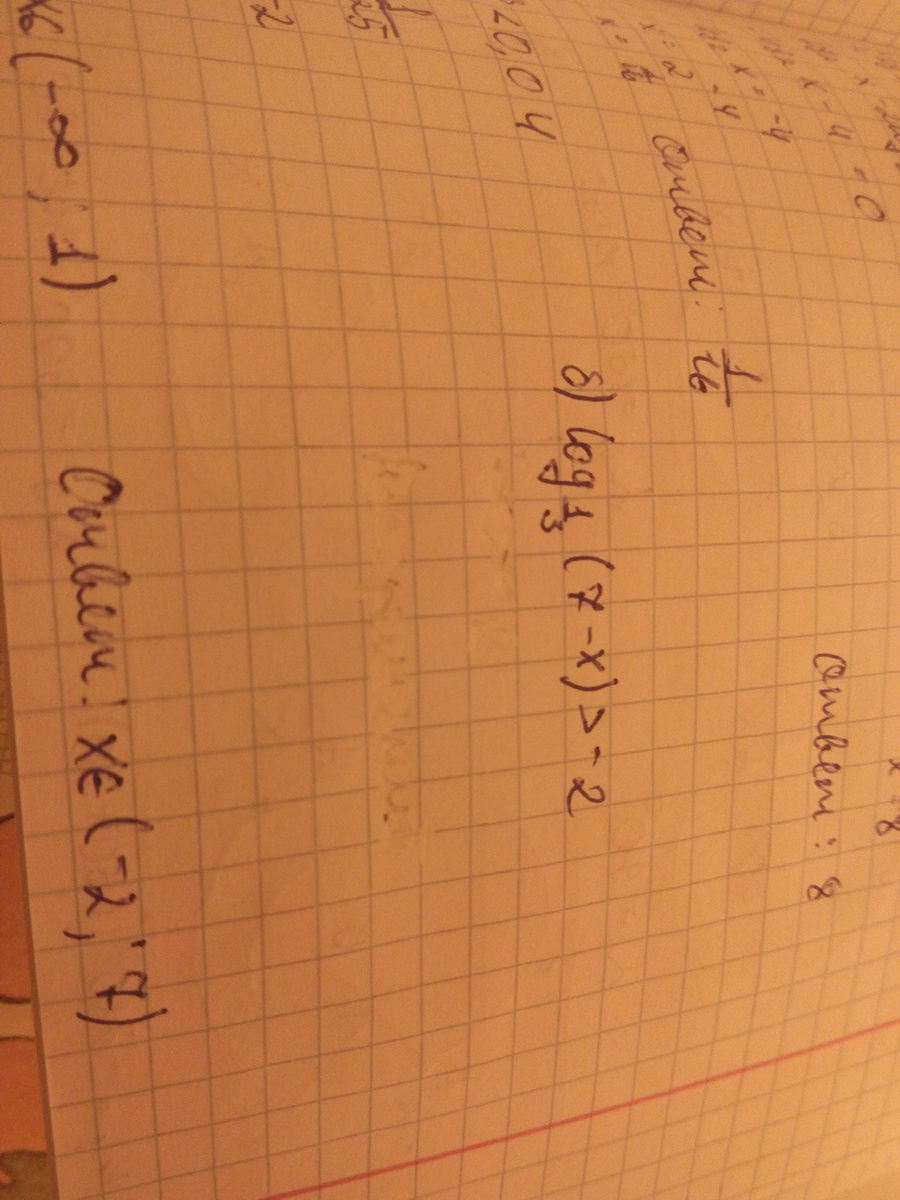 x - 4 = 0
x = -4
x = 2⁻⁴
x = 1/16
Ответ: 1/16
x = 8
Ответ: 8
20,04
1/25
-2
x∈(-∞; 1)
б) log 1/3 (7-x) > -2
Ответ: x∈(-2; 7)